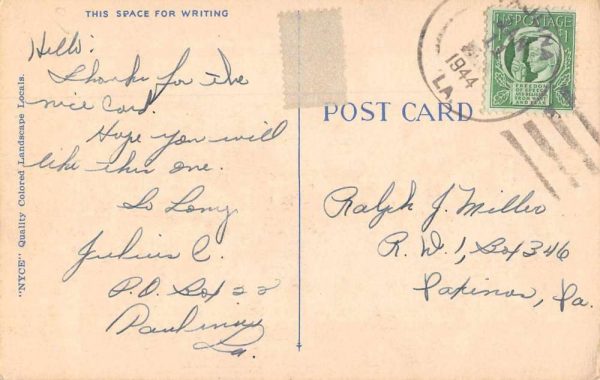 THIS SPACE FOR WRITING
Hello:
Thanks for the
nice card.
Hope you will
like this one.
So Long
Julius C.
P.O. Box 22
Paulina
La.
"NYCE" Quality Colored Landscape Locals.
POST CARD
1944
LA
U.S. POSTAGE 1¢
FREEDOM
OF SPEECH
AND RELIGION
FROM WANT
AND FEAR
Ralph J. Miller
R. D. 1, Box 346
Pa.